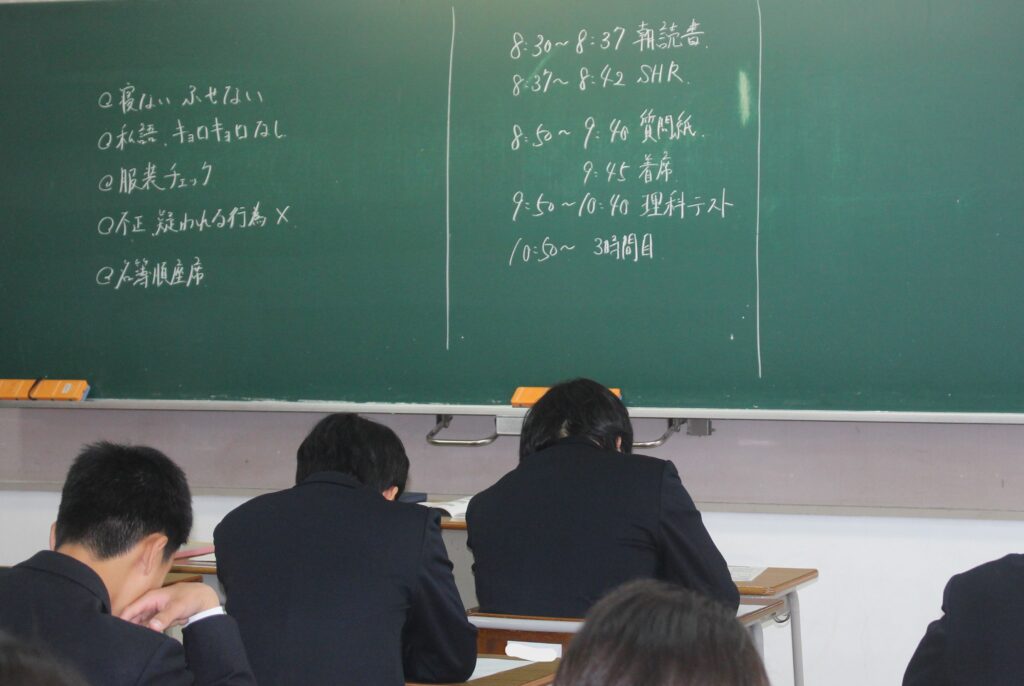 @寝ない ふせない
@私語、キョロキョロなし
@服装チェック
@不正、疑われる行為 ×
@名簿順座席
8:30~8:37 朝読書.
8:37~8:42 SHR.
8:50~9:40 質問紙.
9:45 着席
9:50~10:40 理科テスト
10:50~ 3時間目